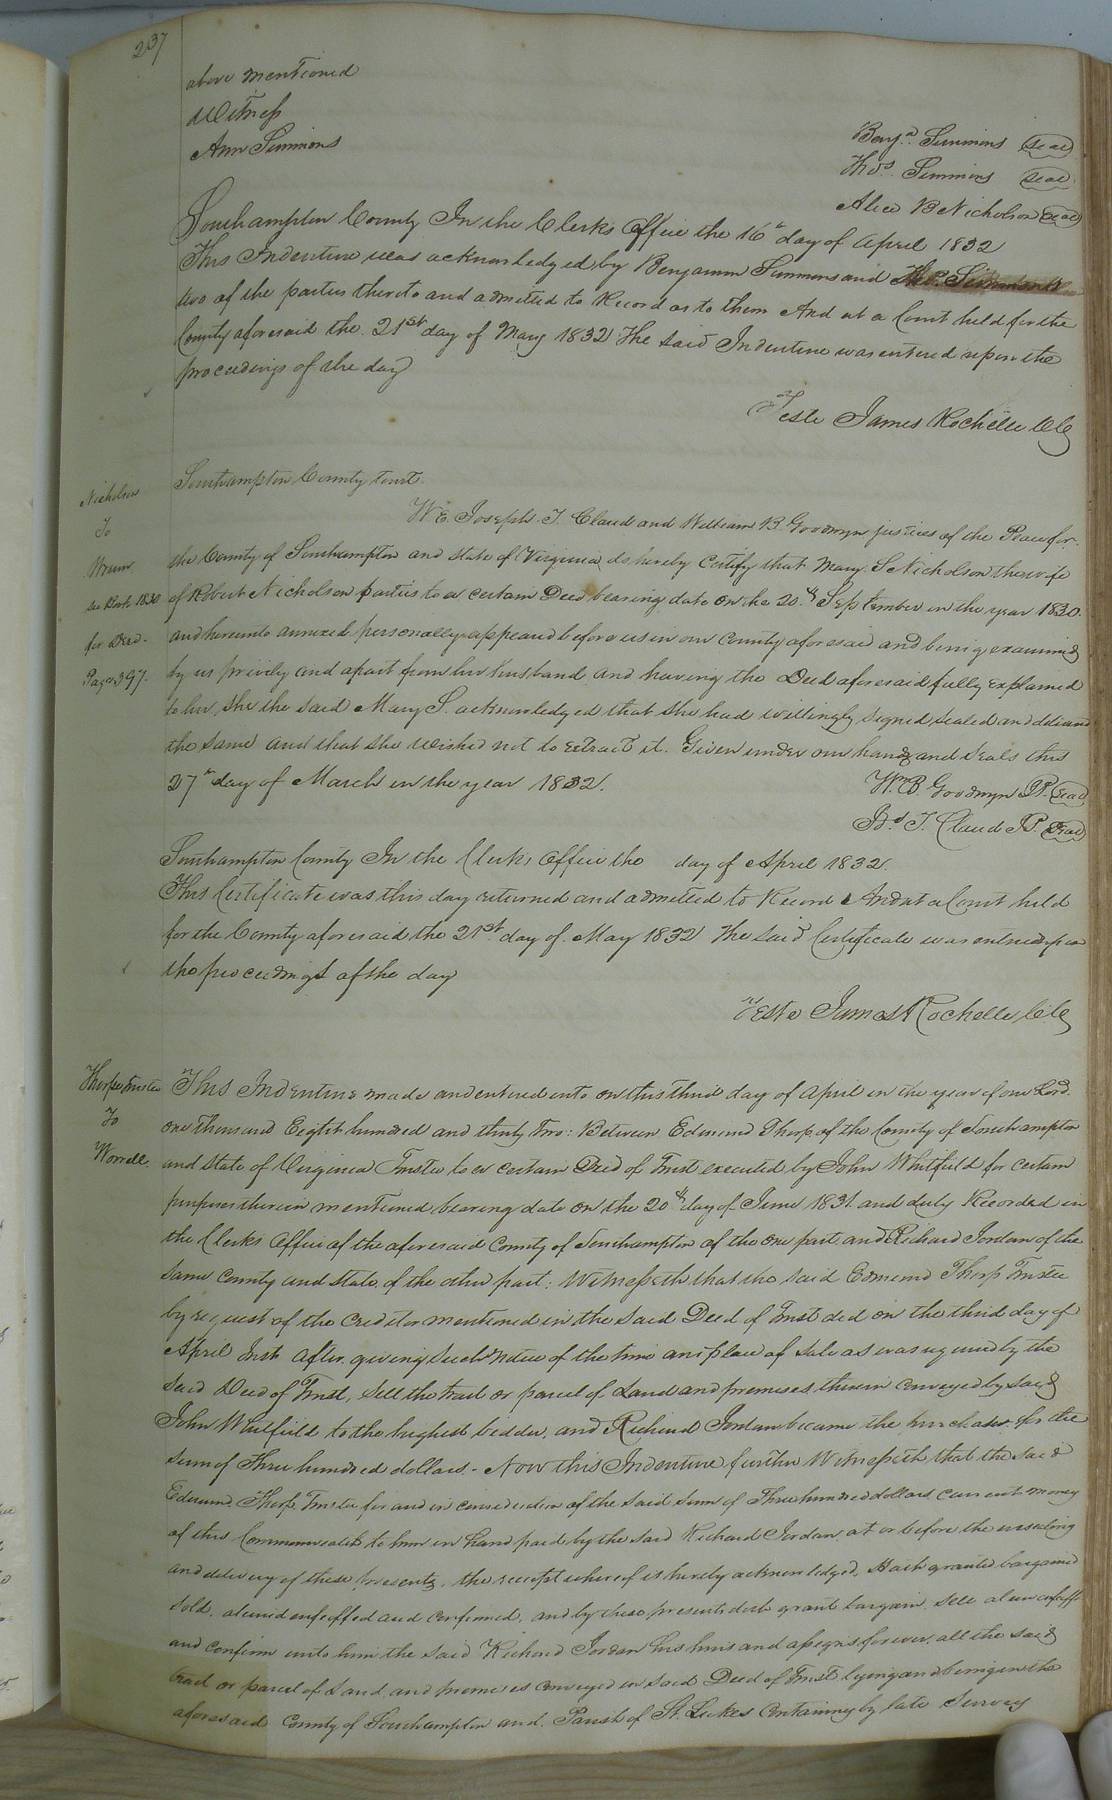 237
above mentioned
Witness
Ann Simmons
Benjn. Simmons seal
Thos. Simmons seal
Alice B Nicholson seal
Southampton County In the Clerks Office the 16th day of April 1832
This Indenture was acknowledged by Benjamin Simmons and Thos. Simmons
two of the parties thereto and admitted to Record as to them And at a Court held for the
County aforesaid the 21st day of May 1832 The said Indenture was entered upon the
proceedings of the day
Teste James Rochelle CC
Nicholson
To
see Book 1830
for Deed.
Page 397.
Southampton County Court.
We Joseph T. Claud and William B. Goodwyn justices of the Peace for
the County of Southampton and state of Virginia, do hereby Certify that Mary S Nicholson the wife
of Robert Nicholson parties to a certain Deed bearing date on the 20th September in the year 1830.
and hereunto annexed personally appeared before us in our County aforesaid and being examined
by us privily and apart from her husband, and having the Deed aforesaid fully explained
to her, She the said Mary S. acknowledged that She had willingly signed sealed and delivered
the same and that she wished not to retract it. Given under our hands and seals this
27th day of March in the year 1832.
Wm. B. Goodwyn JP. seal
T. Claud JP. seal
Southampton County In the Clerks Office the day of April 1832.
This Certificate was this day returned and admitted to Record And at a Court held
for the County aforesaid the 21st. day of May 1832 The said Certificate was entered upon
the proceedings of the day
Teste James Rochelle CC
Thorpe Trustee
To
Worrell.
This Indenture made and entered into on this third day of April in the year of our Lord.
one thousand Eight hundred and thirty two: Between Edmund Thorp, of the County of Southampton
and State of Virginia Trustee to a certain Deed of Trust executed by John Whitfield for certain
purposes therein mentioned bearing date on the 20th day of June 1831. and duly Recorded in
the Clerks Office of the aforesaid County of Southampton of the one part, and Richard Jordan of the
same County and State, of the other part: Witnesseth that the said Edmund Thorp Trustee
by request of the Creditor mentioned in the said Deed of Trust did on the third day of
April Inst. after giving such notice of the time and place of sale as was required by the
said Deed of Trust, sell the tract or parcel of Land and premises, therein conveyed by said
John Whitfield to the highest bidder, and Richard Jordan became the purchaser for the
sum of Three hundred dollars - Now this Indenture further Witnesseth that the said
Edmund Thorp Trustee for and in consideration of the said sum of Three hundred dollars current money
of this Commonwealth to him in hand paid by the said Richard Jordan, at or before the ensealing
and delivery of these presents, the receipt whereof is hereby acknowledged, Hath granted bargained
sold, aliened enfeoffed and confirmed, and by these presents doth grant bargain, sell alien enfeoff
and confirm unto him the said Richard Jordan his heirs and assigns forever, all the said
tract or parcel of Land, and premises conveyed in said Deed of Trust lying and being in the
aforesaid County of Southampton and Parish of St. Lukes Containing by late Survey